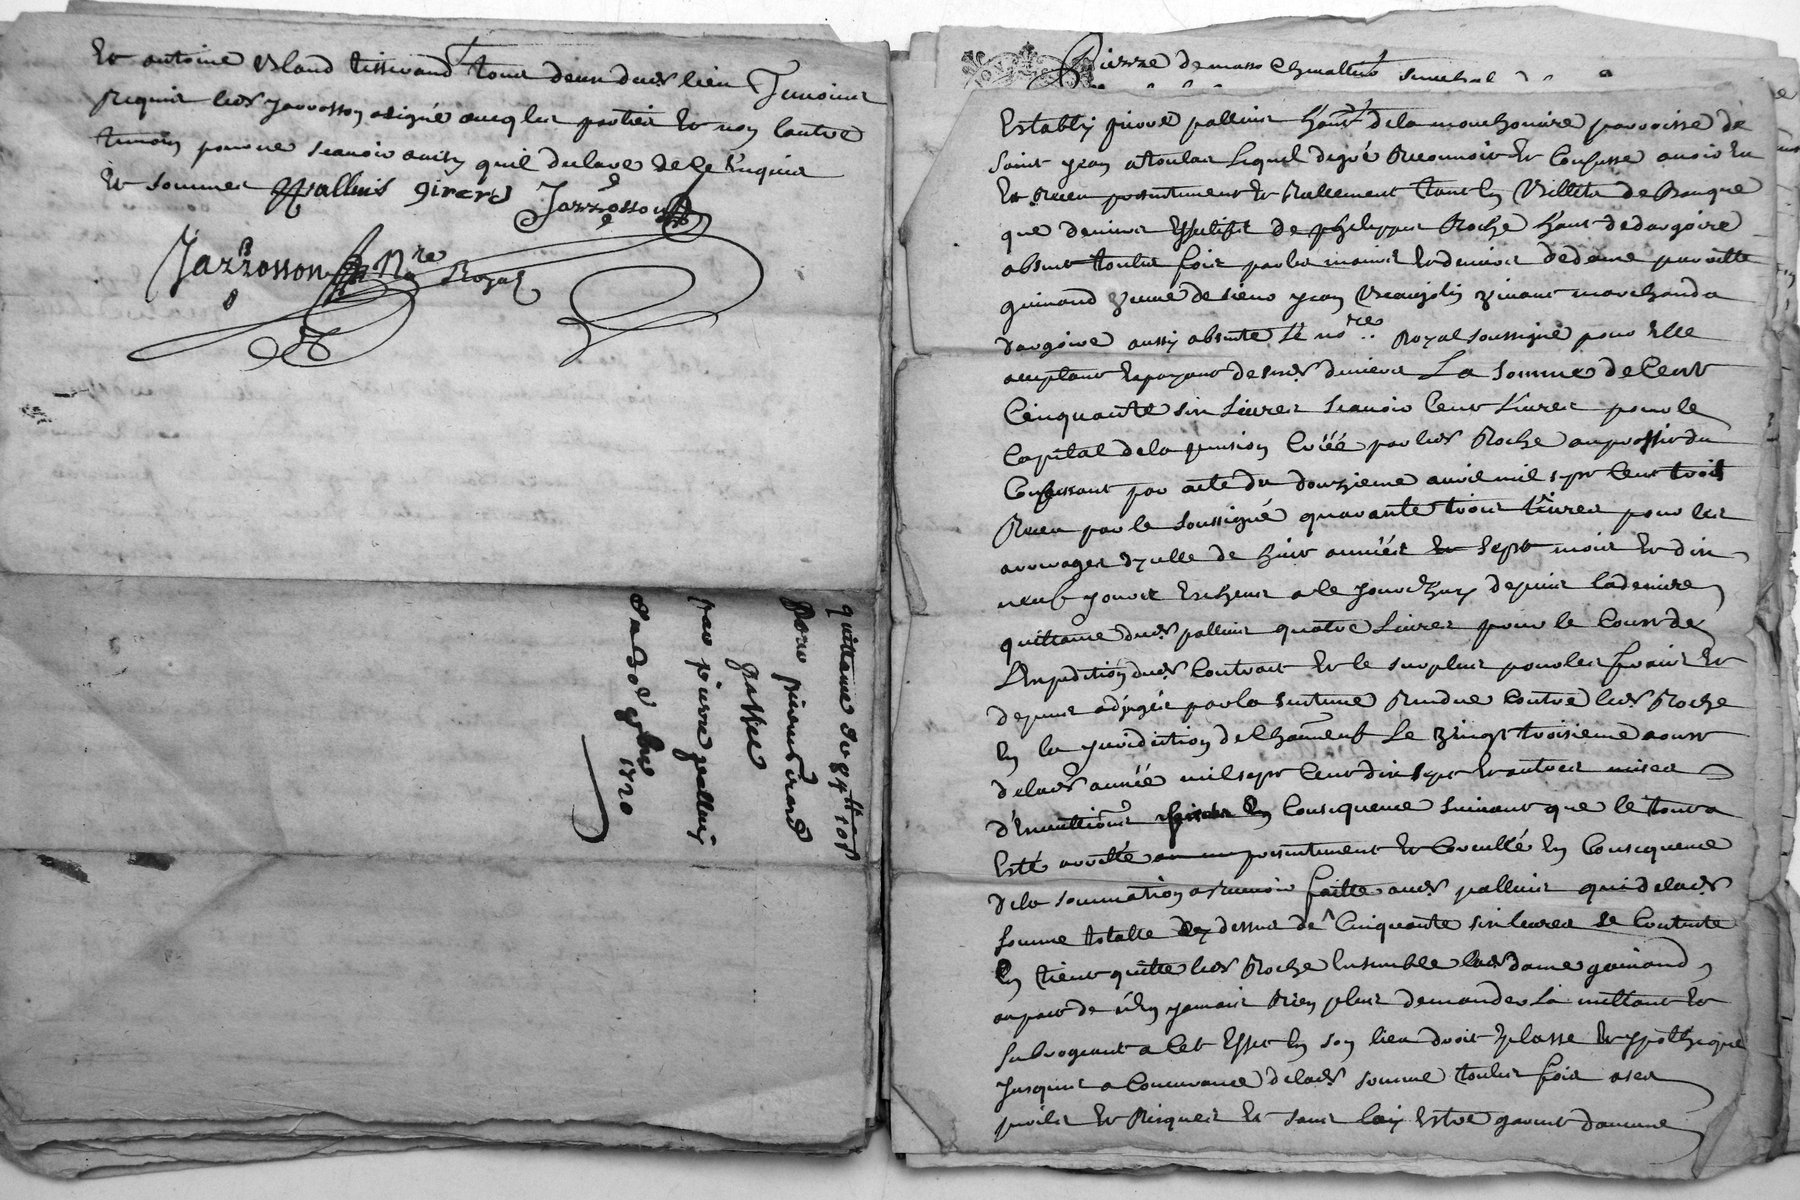 Et antoine Bland tisserand tous deux dud lieu Temoins
Requis led Jarrosson a signé avec les parties Et non lautre
temoin pour ne scavoir ainsy quil declare de ce Enquis
Et sommes Palluis girard Jarrosson
Jarrosson Nre Royal
quittance de
pour pierre Girard
par pierre palluis
1720
Pierre de masso Chevallier senechal
Establi pierre palluis habt de la parroisse de
saint jean a toulas lequel de gré Reconnoit Et Confesse avoir Eu
Et Receu presentement Et Reellement tant En Billets de Banque
que deniers Effectifs de philippes Roche habt de dargoire
absent toutes fois par les mains Et deniers de dame pierrette
guinand veuve de sieur jean Beaujolin vivant marchand a
dargoire aussy absente Le nore Royal soussigné pour Elle
acceptant Et payant de ses deniers La somme de Cent
Cinquante six Livres scavoir Cent Livres pour le
Capital de la pension Créé par led Roche au proffit du
Confessant par acte du douzieme avril mil sept Cent trois
Receu par le soussigné quarante trois Livres pour les
arrerages d'ycelle de huit années Et sept mois Et dix
neuf jours Escheus a ce jourdhuy depuis la derniere
quittance dud palluis quatre Livres pour le Cours de
L'Expedition dud Contrat Et le surplus pour les fraix Et
depens adjugés par la sentence Rendue Contre led Roche
En la jurisdiction de Le vingt troisieme aoust
de lad année mil sept Cent dix sept Et autres mises
d'Executions En Consequence suivant que le tout a
Esté arretté presentement Et Calculé En Consequence
de la sommation faitte aud palluis qui de lad
somme totalle de Cinquante six livres se Contente
En tient quitte led Roche Ensemble lad dame guinand
au pact de n'En jamais Rien plus demander La mettant Et
subrogeant a Cet Effet En son lieu droit place Et ypothèque
jusques a Concurrance de lad somme toutes fois a ses
perils Et Risques Et sans luy Estre garent d'aucune